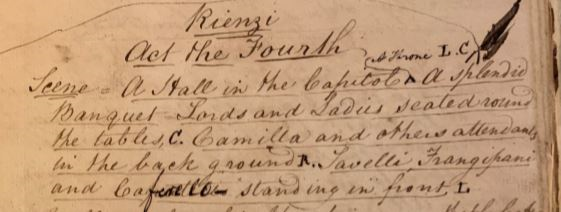 Rienzi
Act the Fourth
A Throne L.C.
Scene = A Hall in the Capitol ^ A splendid
Banquet - Lords and Ladies seated round
the tables, C. Camilla and others attendants
in the back ground R. Savelli, Frangipani
and Cafarello - standing in front L